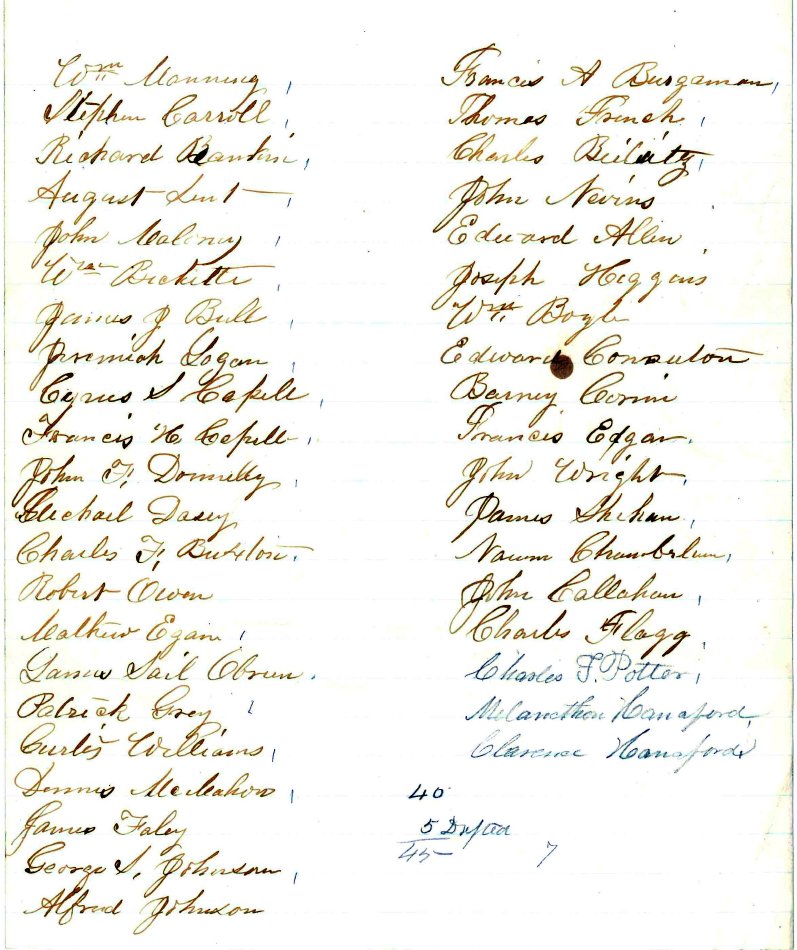 Wm Manning
Stephen Carroll
Richard Rankin
August Lent
John Maloney
Wm Bickette
James J Bull
Jeremiah Logan
Cyrus S Capell
Francis H Capell
John F. Donnelly
Michael Dasey
Charles F. Buxton
Robert Owen
Mathew Egan
James Sail Obrien
Patrick Grey
Curtis Williams
Dennis McMahon
James Faley
George S. Johnson
Alfred Johnson
Francis A Burgaman
Thomas French
Charles
John Nevins
Edward Allen
Joseph Higgins
Wm Bogle
Edward
Barney
Francis Edgar
John Wright
James Shehan
Naum Chamberlain
John Callahan
Charles Flagg
Charles F. Potter
Melancthon Hanaford
Clarence Hanaford
40
5 Drafted
45
7